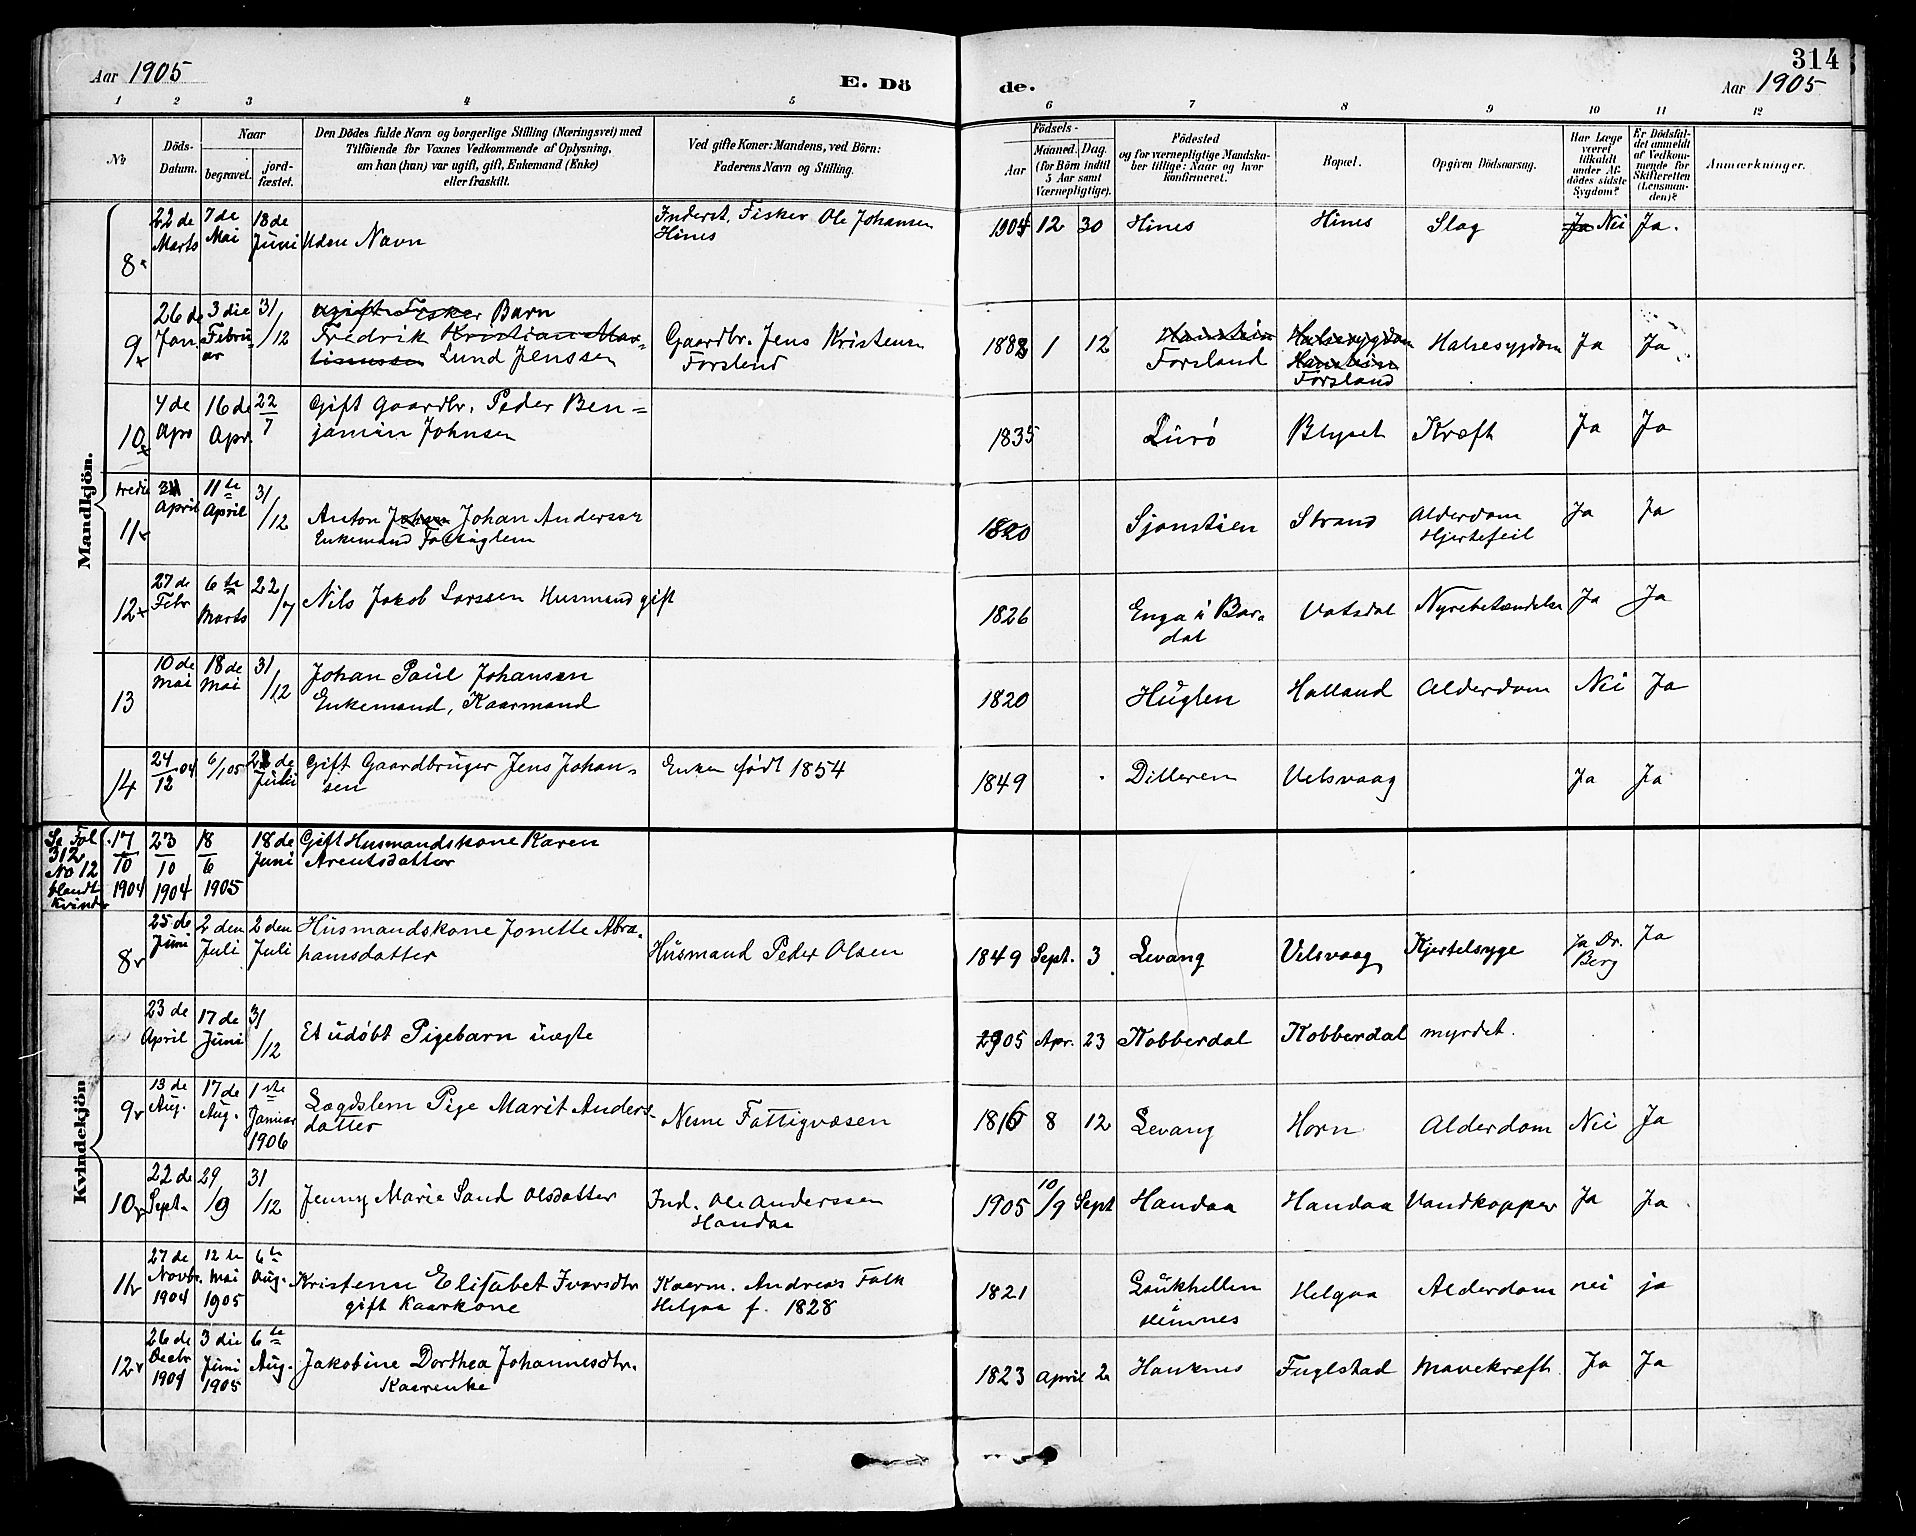 Aar 1905
E. Dö
de.
314
Aar 1905
1 2 3 4 5 6 7 8 9 10 11 12
No
Döds-
Datum.
Naar
begravet.
jord-
fæstet.
Den Dödes fulde Navn og borgerlige Stilling (Næringsvei) med
Tilföiende for Voxnes Vedkommende af Oplysning,
om han (hun) var ugift, gift, Enkemand (Enke)
eller fraskilt.
Ved gifte Koner: Mandens, ved Börn:
Faderens Navn og Stilling.
Födsels-
Aar
Maaned. Dag.
(for Börn indtil
5 Aar samt
Værnepligtige).
Födested
og for værnepligtige Mandska-
ber tillige: Naar og hvor
konfirmeret.
Bopæl.
Opgiven Dödsaarsag.
Har Læge
været
tilkaldt
under Af-
dödes sidste
Sygdom?
Er Dödsfal-
det anmeldt
af Vedkom-
mende for
Skifteretten
(Lensman-
den)?
Anmærkninger.
Mandkjön.
8
22 de
Marts
7 de
Mai
18 de
Juni
Uden Navn
Inderst, Fisker Ole Johansen
Hines
1904 12 30
Hines
Hines
Slag
Ja Nei
Ja.
9
26 de
Jan
3 die
Febru-
ar
31/12
ugift Fisker Barn
Fredrik Kristian Mar-
tinussen Lund Jenssen
Gaardbr. Jens Kristensen
Forslend
1888 1 12
Forsland
Halsesygdom
Forsland
Halsesygdom
Ja
Ja
10
4 de
Apr
16 de
Apr.
22/7
Gift Gaardbr. Peder Ben=
jamin Johnsen
1835
Lurö
Blyset
Kræft
Ja
Ja
11
April
11te
April
31/12
Anton Johan Johan Anderssen
Enkemand
1820
Sjonstien
Strand
Alderdom
Hjertefeil
Ja
Ja
12
27 de
Febr
6te
Marts
22/7
Nils Jakob Larssen Husmand gift
1826
Enga i Bar-
dal
Vatsdal
Nyrebetændelse
Ja
Ja
13
10 de
Mai
18 de
Mai
31/12
Johan Paul Johansen
Enkemand, Kaarmand
1820
Huglen
Halland
Alderdom
Nei
Ja
14
24/12 04
6/1 05
de
Juli
Gift Gaardbruger Jens Johan-
sen
Enken födt 1854
1849
Dilleren
Velsvaag
Ja
Ja
Kvindekjön
Se Fol
312
No 12
blandt
Kvinder
17/10
1904
23/10
1904
18/6
1905
18 de
Juni
Gift Husmandskone Karen
Arentsdatter
8
25 de
Juni
2 den
Juli
2 den
Juli
Husmandskone Jonette Abra-
hamsdatter
Husmand Peder Olsen
1849 Sept. 3
Levang
Velsvaag
Kjertelsyge
Ja Dr.
Berg
Ja
23 de
April
17 de
Juni
31/12
Et udöbt Pigebarn uægte
1905 Apr. 23
Kobberdal
Kobberdal
myrdet.
9
13 de
Aug.
17 de
Aug.
1ste
Januar
1906
Lægdslem Pige Marit Anders-
datter
Nesne Fattigvæsen
1816 8 12
Levang
Horn
Alderdom
Nei
Ja
10
22 de
Sept.
29/9
31/12
Jenny Marie Sand Olsdatter
Ind. Ole Anderssen
Handaa
1905 10/9 Sept
Handaa
Handaa
Vandkopper
Ja
Ja
11
27 de
Novbr.
1904
12te
Mai
1905
6te
Aug.
Kristense Elisabet Ivarsdtr
gift Kaarkone
Kaarm. Andreas Falk
Helgaa f. 1828
1821
Laukhellen
i
Hemnes
Helgaa
Alderdom
nei
ja
12
26 de
Decbr
1904
3 die
Juni
1905
6te
Aug.
Jakobine Dorthea Johannesdtr.
Kaarenke
1823 April 2
Hauknes
Fuglstad
Mavekræft
Ja
Ja